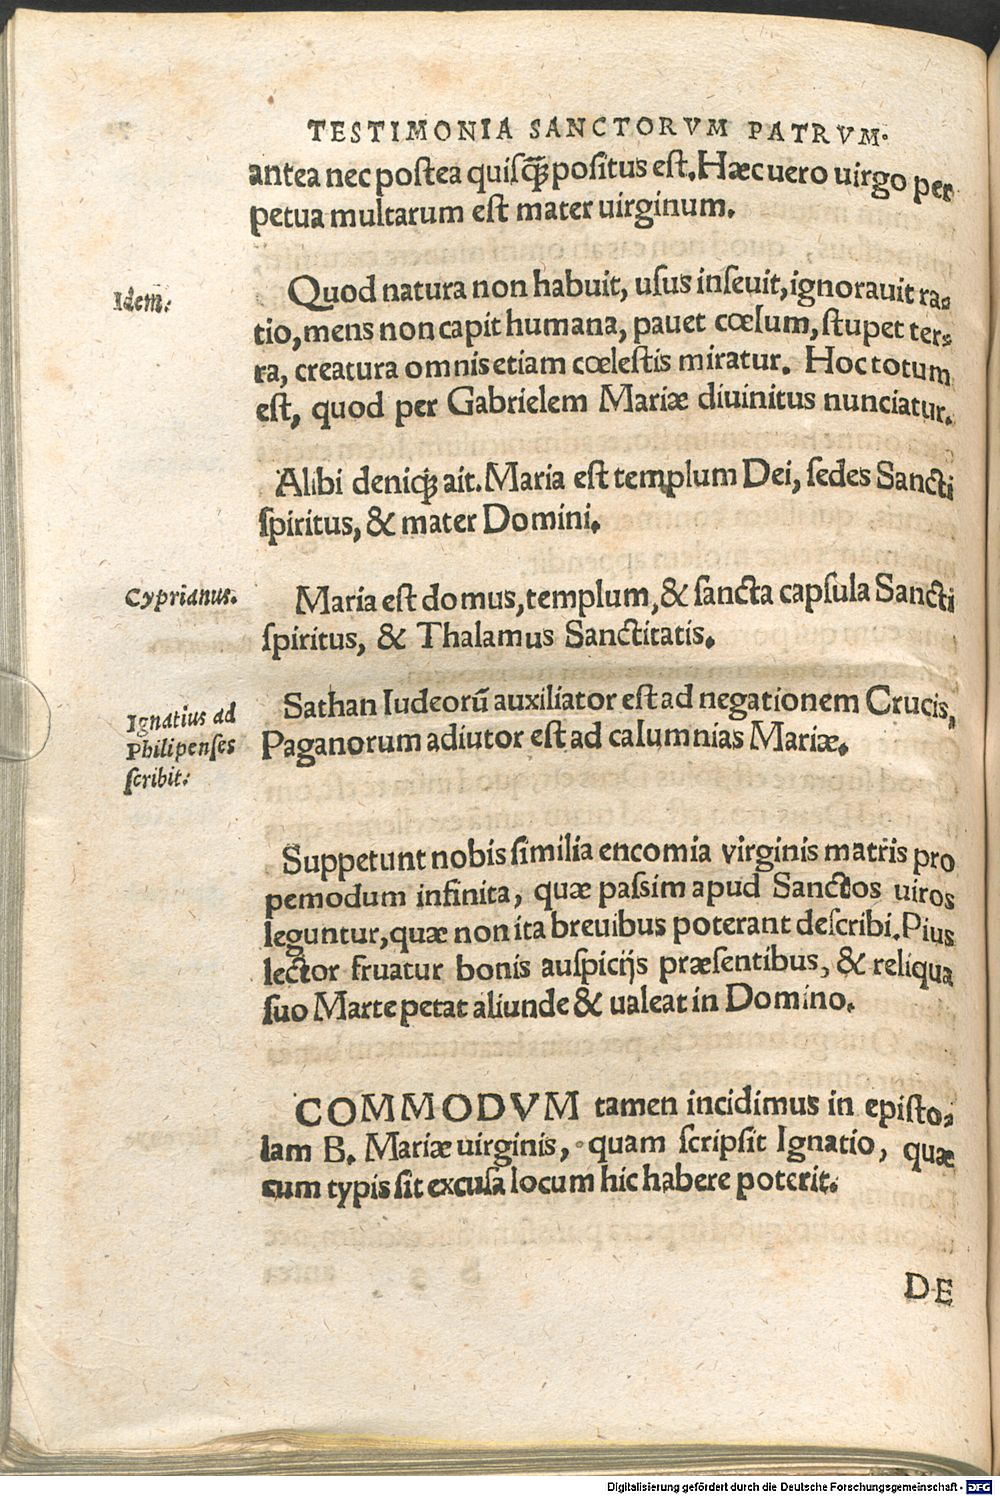 TESTIMONIA SANCTORVM PATRVM.
antea nec postea quisq̃ꝫ positus est. Hæc uero uirgo per
petua multarum est mater uirginum.
Idem.
Quod natura non habuit, usus inseuit, ignorauit ra-
tio, mens non capit humana, pauet cœlum, stupet ter-
ra, creatura omnis etiam cœlestis miratur. Hoc totum
est, quod per Gabrielem Mariæ diuinitus nunciatur.
Alibi deniqꝫ ait. Maria est templum Dei, sedes Sancti
spiritus, & mater Domini.
Cyprianus.
Maria est domus, templum, & sancta capsula Sancti
spiritus, & Thalamus Sanctitatis.
Ignatius ad
Philipenses
scribit:
Sathan Iudeorũ auxiliator est ad negationem Crucis,
Paganorum adiutor est ad calumnias Mariæ.
Suppetunt nobis similia encomia virginis matris pro
pemodum infinita, quæ passim apud Sanctos uiros
leguntur, quæ non ita breuibus poterant describi. Pius
lector fruatur bonis auspicijs præsentibus, & reliqua
suo Marte petat aliunde & ualeat in Domino.
COMMODVM tamen incidimus in episto-
lam B. Mariæ uirginis, quam scripsit Ignatio, quæ
cum typis sit excusa locum hic habere poterit.
DE
Digitalisierung gefördert durch die Deutsche Forschungsgemeinschaft - DFG